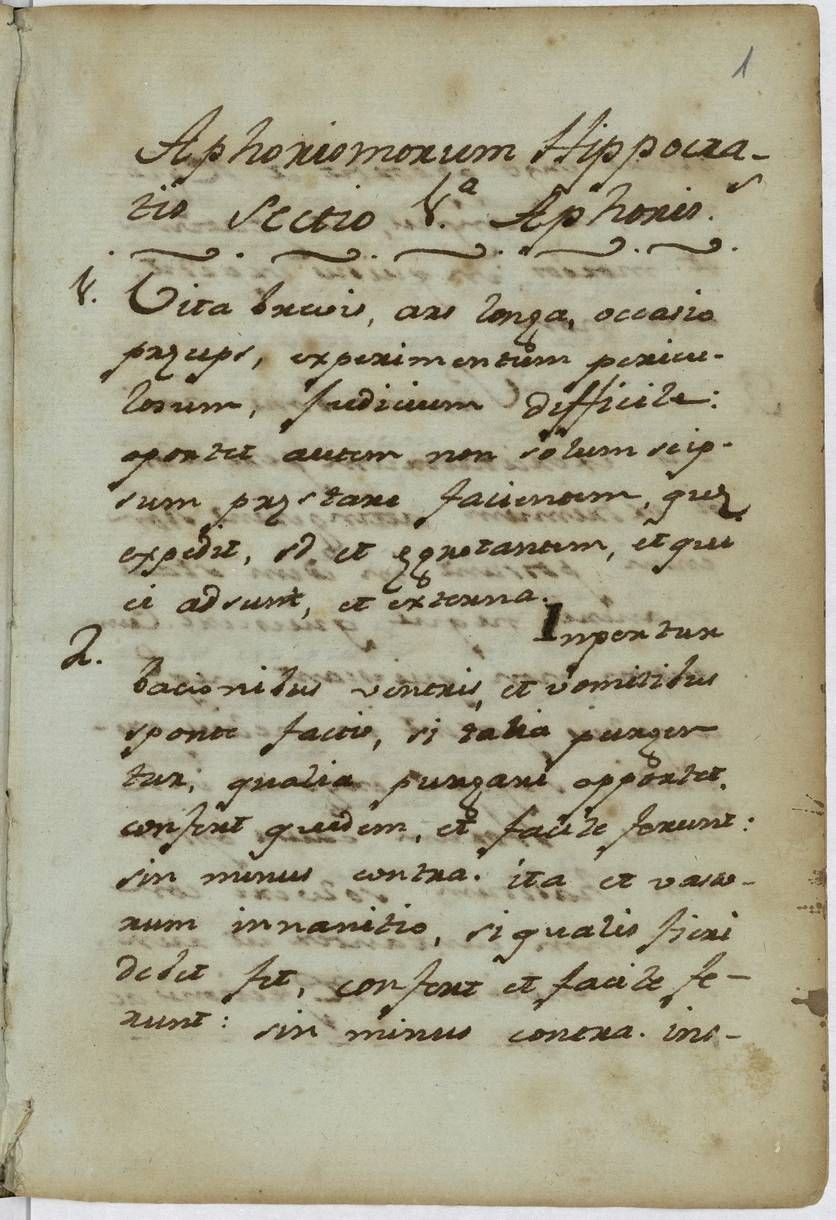 1
Aphorismorum Hippocra-
tis Sectio 1.ª Aphoris.s
1. Vita brevis, ars longa, occasio
præceps, experimentum pericu-
losum, Judicium difficile:
oportet autem non solum seip-
sum præstare facientem, quæ
expedit, sd et ægrotantem, et qui
ei adsunt, et externa.
2. Inpertur
bacionibus ventris, et vomitibus
sponte factis, si talia purgen
tur, qualia purgari opportet,
confert quidem, et facile ferunt:
sin minus contra. ita et vaso-
rum innanitio, si qualis fieri
debet fit, confert et facile fe-
runt: sin minus contra. ins-